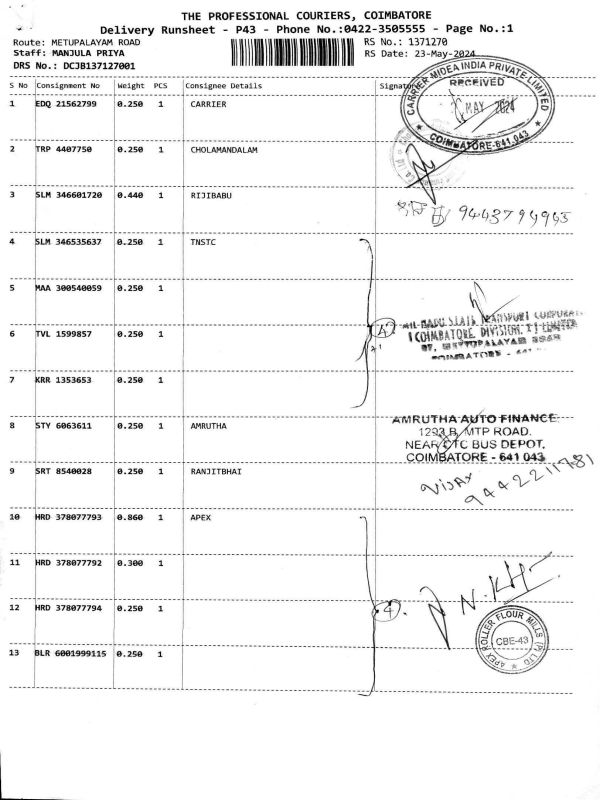 THE PROFESSIONAL COURIERS, COIMBATORE
Delivery Runsheet - P43 - Phone No.:0422-3505555 - Page No.:1
Route: METUPALAYAM ROAD
Staff: MANJULA PRIYA
DRS No.: DCJB137127001
RS No.: 1371270
RS Date: 23-May-2024
S No Consignment No Weight PCS Consignee Details Signature
CARRIER MIDEA INDIA PRIVATE LIMITED
RECEIVED
MAY 2024
COIMBATORE-641 043
1 EDQ 21562799 0.250 1 CARRIER
2 TRP 4407750 0.250 1 CHOLAMANDALAM
3 SLM 346601720 0.440 1 RIJIBABU
9443794943
4 SLM 346535637 0.250 1 TNSTC
5 MAA 300540059 0.250 1
4
STATE TRANSPORT CORPORATION
(COIMBATORE, DIVISION. I) LIMITED
METTUPALAYAM ROAD
COIMBATORE - 641
6 TVL 1599857 0.250 1
7 KRR 1353653 0.250 1
8 STY 6063611 0.250 1 AMRUTHA
AMRUTHA AUTO FINANCE
1293 B, MTP ROAD.
NEAR CTC BUS DEPOT,
COIMBATORE - 641 043
9 SRT 8540028 0.250 1 RANJITBHAI
VIJAY
9442211781
10 HRD 378077793 0.860 1 APEX
11 HRD 378077792 0.300 1
12 HRD 378077794 0.250 1
4
APEX ROLLER FLOUR MILLS (P) LTD
CBE-43
13 BLR 6001999115 0.250 1